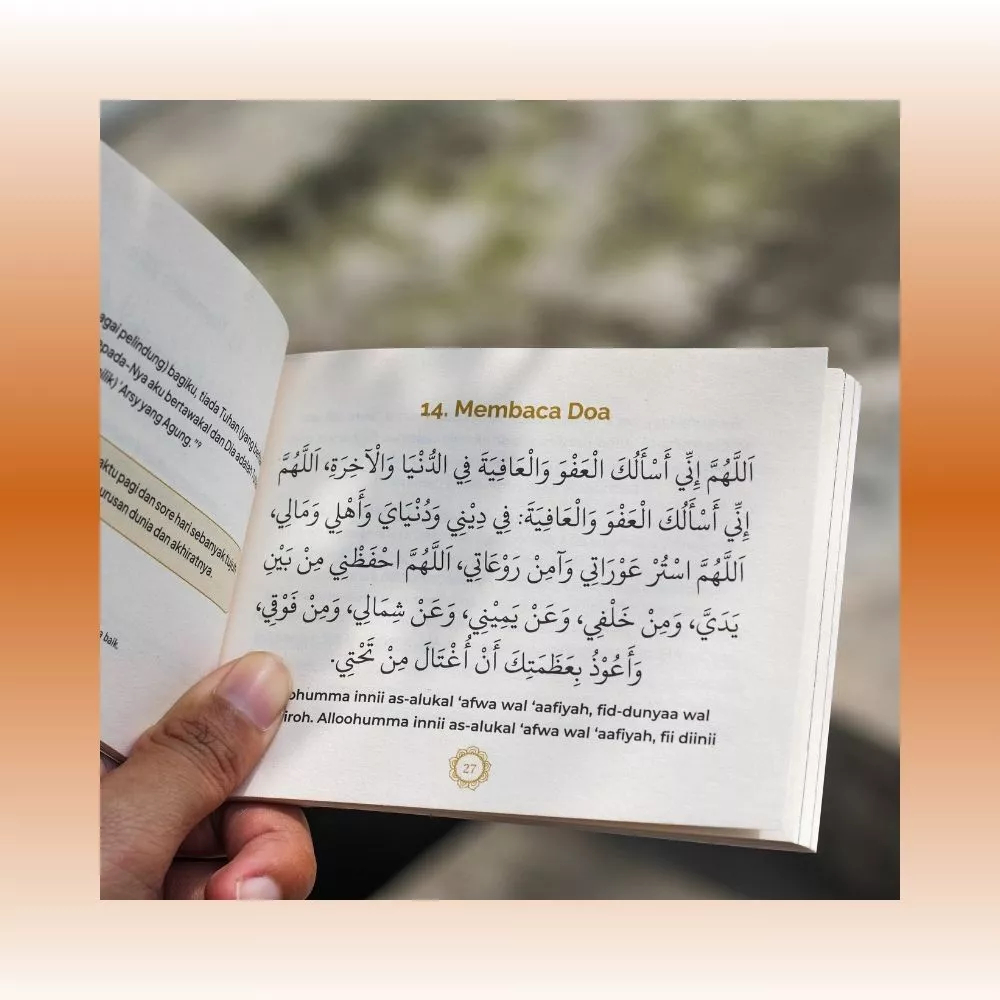 agai pelindung) bagiku, tiada Tuhan (yang
epada-Nya aku bertawakal dan Dia adalah
ilik) 'Arsy yang Agung."⁹
aktu pagi dan sore hari sebanyak tujuh
urusan dunia dan akhiratnya.
baik.
14. Membaca Doa
اَللَّهُمَّ إِنِّي أَسْأَلُكَ الْعَفْوَ وَالْعَافِيَةَ فِي الدُّنْيَا وَالْآخِرَةِ، اَللَّهُمَّ
إِنِّي أَسْأَلُكَ الْعَفْوَ وَالْعَافِيَةَ: فِي دِيْنِي وَدُنْيَايَ وَأَهْلِي وَمَالِي،
اَللَّهُمَّ اسْتُرْ عَوْرَاتِي وَآمِنْ رَوْعَاتِي، اَللَّهُمَّ احْفَظْنِي مِنْ بَيْنِ
يَدَيَّ، وَمِنْ خَلْفِي، وَعَنْ يَمِيْنِي، وَعَنْ شِمَالِي، وَمِنْ فَوْقِي،
وَأَعُوْذُ بِعَظَمَتِكَ أَنْ أُغْتَالَ مِنْ تَحْتِي.
ohumma innii as-alukal 'afwa wal 'aafiyah, fid-dunyaa wal
iroh. Alloohumma innii as-alukal 'afwa wal 'aafiyah, fii diinii
27